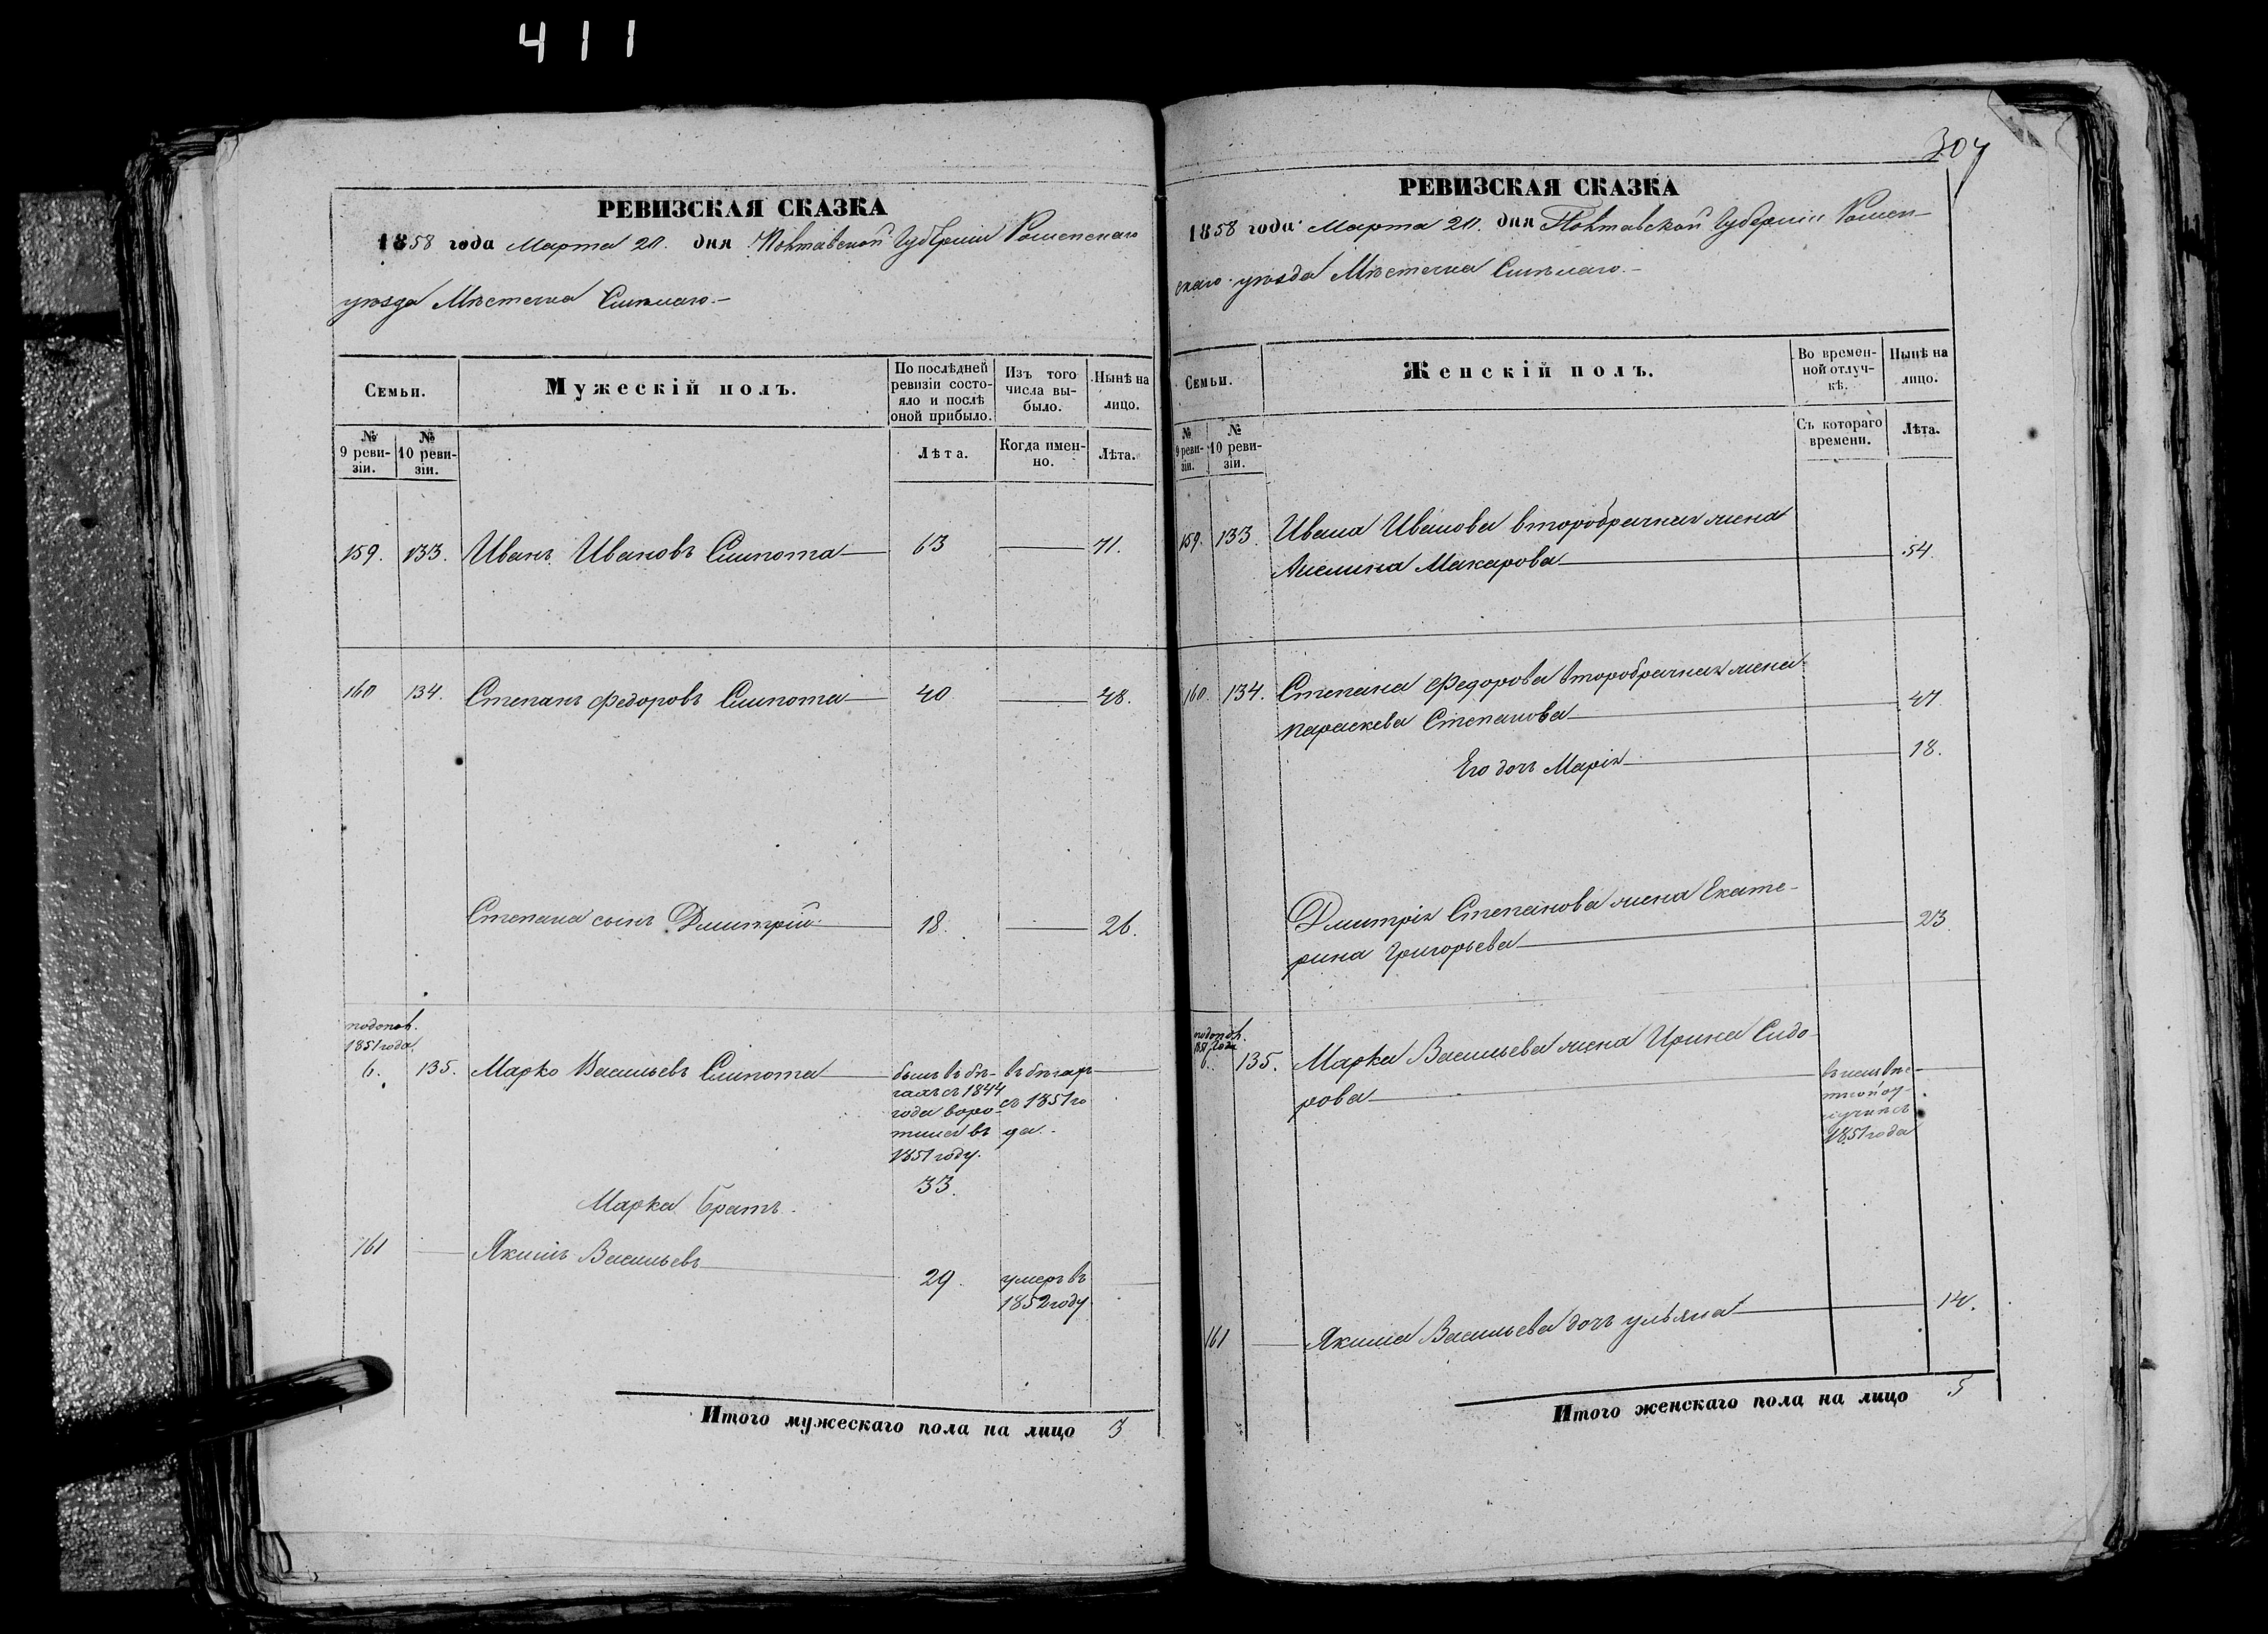 411
РЕВИЗСКАЯ СКАЗКА
1858 года Марта 20. дня Полтавской Губерніи Роменскаго
уѣзда Мѣстечка Смѣлаго.
Семьи.
Мужескій полъ.
По послѣдней ревизіи состояло и послѣ оной прибыло.
Изъ того числа выбыло.
Нынѣ на лицо.
№ 9 ревизіи.
№ 10 ревизіи.
Лѣта.
Когда именно.
Лѣта.
159. 133. Иванъ Ивановъ Слипота 63 71.
160 134. Степанъ Федоровъ Слипота 40 48.
Степана сынъ Дмитрій 18. 26.
подопол.
1851 года.
6. 135. Марко Васильевъ Слипота
былъ въ бѣ-
гахъ съ 1844
года воро-
тился въ
1851 году.
33.
въ бѣгахъ
съ 1851 го
да.
Марка Братъ.
161 Якимъ Васильевъ
29. умеръ въ
1852 году
Итого мужескаго пола на лицо 3
307
РЕВИЗСКАЯ СКАЗКА
1858 года Марта 20. дня Полтавской Губерніи Ромен-
скаго уѣзда Мѣстечка Смѣлаго.
Семьи.
Женскій полъ.
Во временной отлучкѣ.
Нынѣ на лицо.
№ 9 ревизіи.
№ 10 ревизіи.
Съ котораго времени.
Лѣта.
159. 133. Ивана Иванова второбрачная жена
Акелина Макарова 54.
160. 134. Степана Федорова второбрачная жена
Параскева Степанова 47.
Его дочь Марія 18.
Дмитрія Степанова жена Екате-
рина Григорьева 23.
подопол.
1851 года
6. 135. Марка Васильева жена Ирина Сидо
рова
въ неизвѣс-
тной от
лучкѣ съ
1851 года
161 Якима Васильева дочь Ульяна 14.
Итого женскаго пола на лицо 5